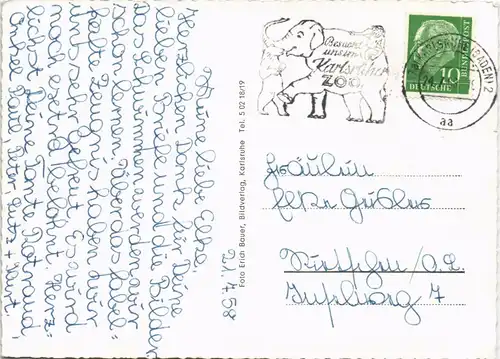 21.4.58
Meine liebe Elke!
Herzlichen Dank für Deine
lieben Grüße und die Bilder
das schwimmen werden wir
schon lernen. Über das fabel-
hafte Zeugnis haben wir
uns sehr gefreut. Es wird
noch extra belohnt. Herz-
lichst Deine Tante Gertraud
Onkel Paul, Peter, Putz + Kurt.
Foto Erich Bauer, Bildverlag, Karlsruhe Tel. 5 02 18/19
Besucht
unsern
Karlsruher
ZOO
KARLSRUHE (BADEN) 2
aa
10
DEUTSCHE
BUNDESPOST
Fräulein
Elke
a.
7